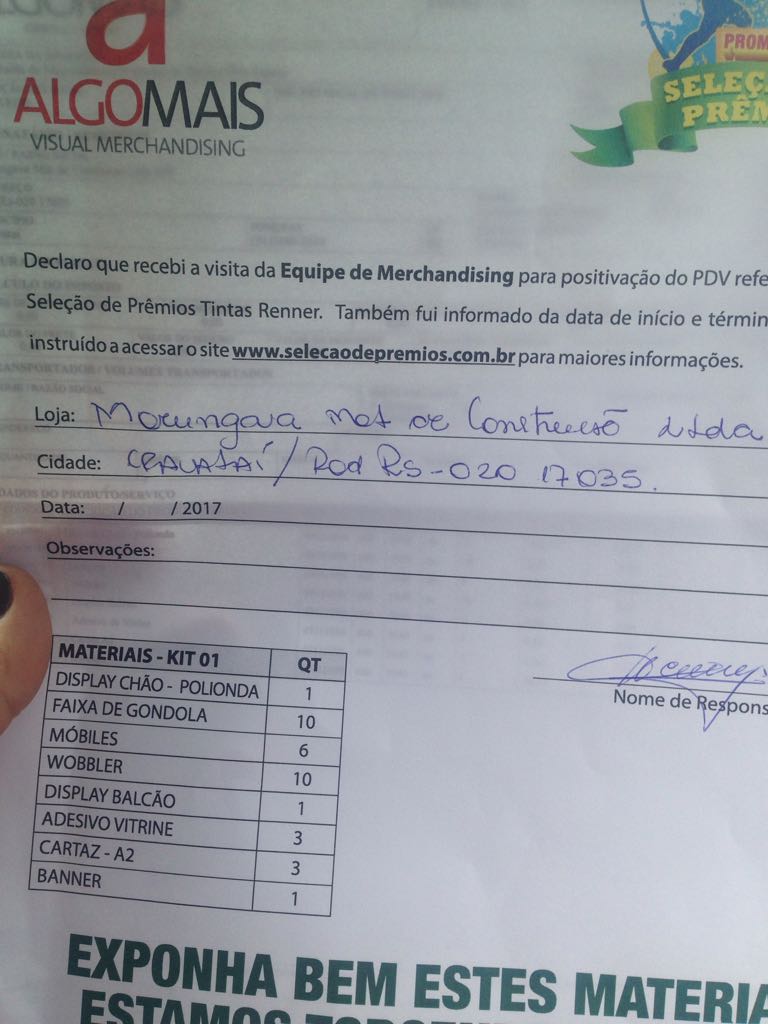 a
ALGOMAIS
VISUAL MERCHANDISING
PROM
SELEÇ
PRÊM
Declaro que recebi a visita da Equipe de Merchandising para positivação do PDV refe
Seleção de Prêmios Tintas Renner. Também fui informado da data de início e términ
instruído a acessar o site www.selecaodepremios.com.br para maiores informações.
Loja: Morungava mat de Construcão Ltda
Cidade: GRAVATAÍ / Rod RS-020 17035.
Data: / / 2017
Observações:
MATERIAIS - KIT 01 QT
DISPLAY CHÃO - POLIONDA 1
FAIXA DE GONDOLA 10
MÓBILES 6
WOBBLER 10
DISPLAY BALCÃO 1
ADESIVO VITRINE 3
CARTAZ - A2 3
BANNER 1
Nome de Respons
EXPONHA BEM ESTES MATERIA
ESTAMOS